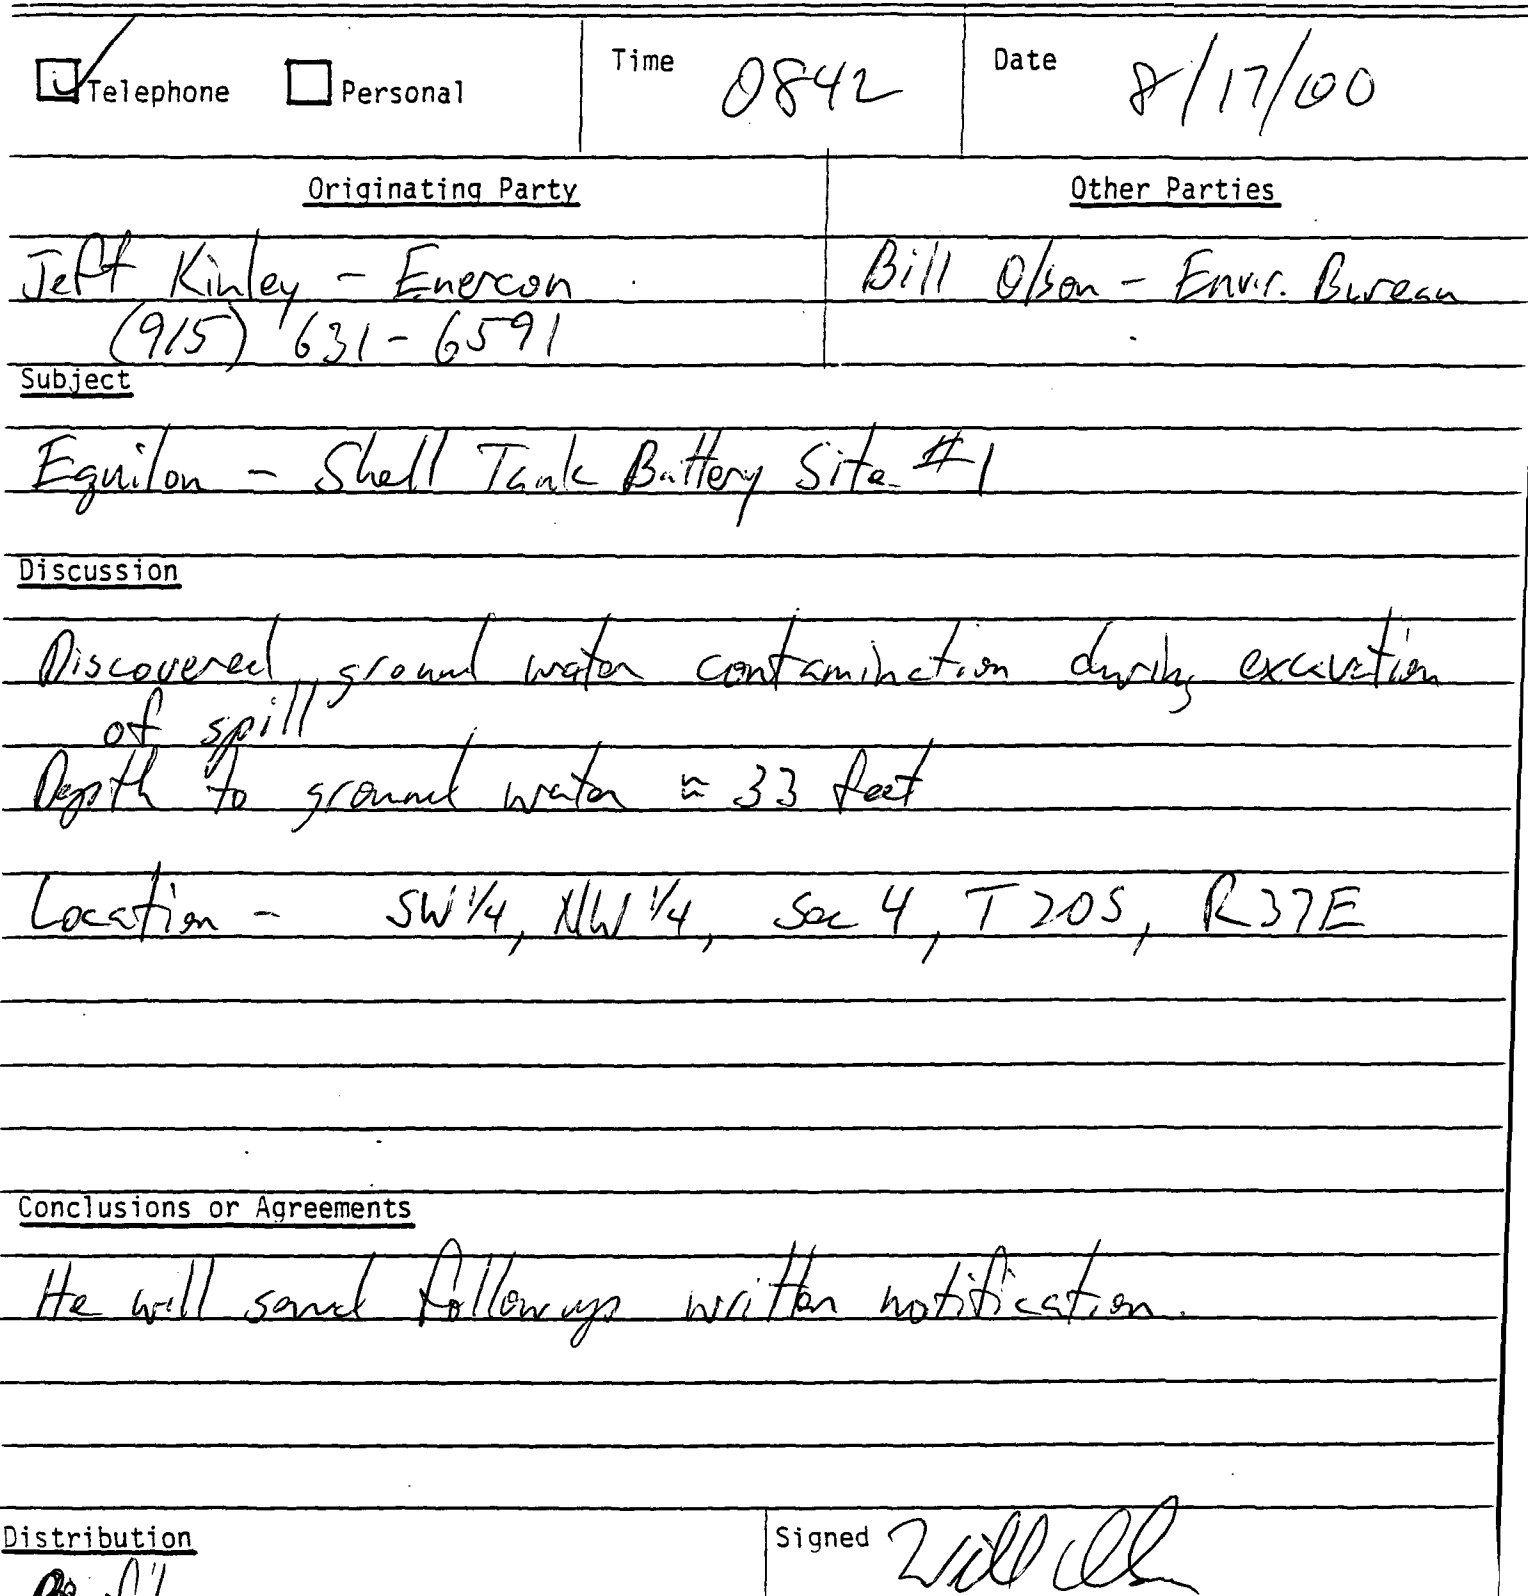 Telephone Personal Time 0842 Date 8/17/00
Originating Party Other Parties
Jeff Kinley - Enercon Bill Olson - Envir. Bureau
(915) 631-6591
Subject
Equilon - Shell Tank Battery Site #1
Discussion
Discovered ground water contamination during excavation
of spill
Depth to ground water ≈ 33 feet
Location - SW 1/4, NW 1/4, Sec 4, T20S, R37E
Conclusions or Agreements
He will send followup written notification.
Distribution Signed